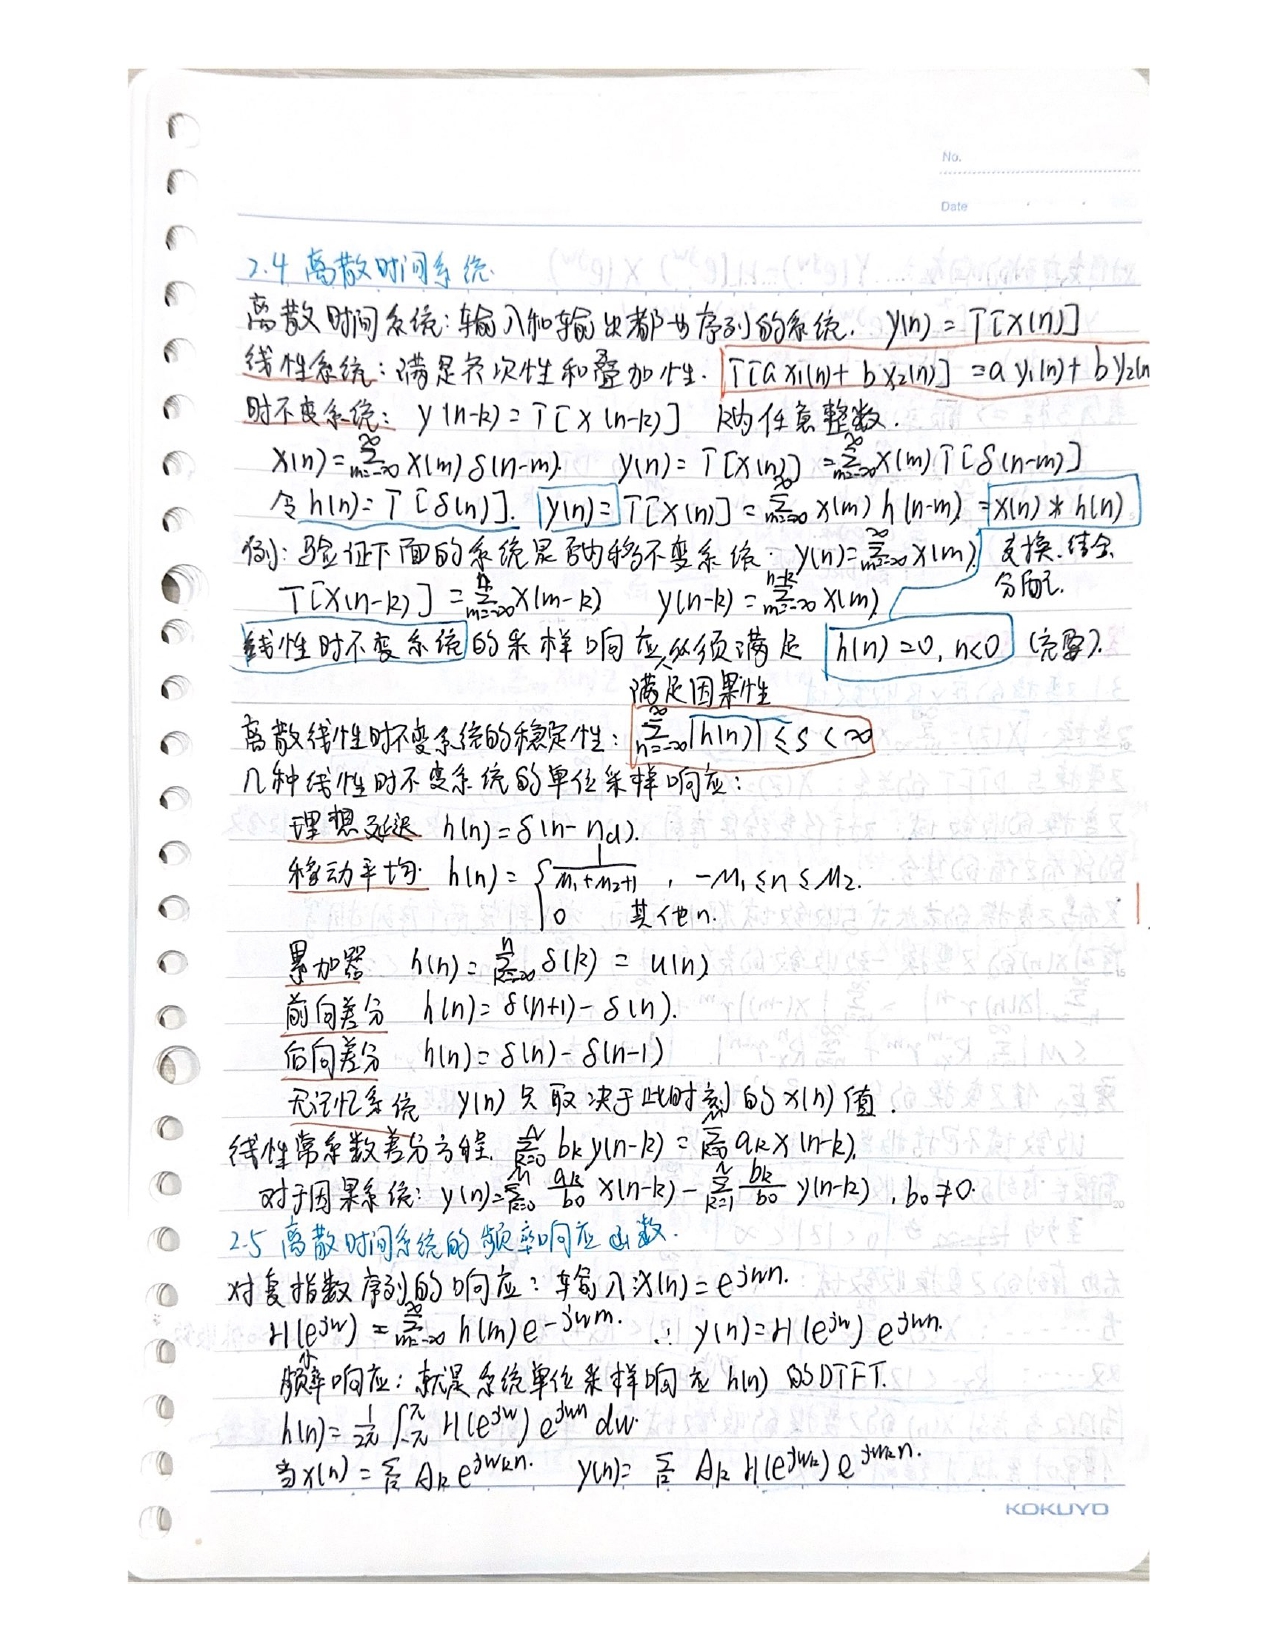 No.
Date
2.4 离散时间系统
离散时间系统：输入和输出都为序列的系统. y(n) = T[x(n)]
线性系统：满足齐次性和叠加性. T[a x₁(n) + b x₂(n)] = a y₁(n) + b y₂(n
时不变系统： y(n-k) = T[x(n-k)] k为任意整数.
x(n) = ∑_{m=-∞}^{∞} x(m) δ(n-m). y(n) = T[x(n)] = ∑_{m=-∞}^{∞} x(m) T[δ(n-m)]
令 h(n) = T[δ(n)]. y(n) = T[x(n)] = ∑_{m=-∞}^{∞} x(m) h(n-m) = x(n) * h(n)
例：验证下面的系统是否为移不变系统. y(n) = ∑_{m=-∞}^{n} x(m) 交换.结合
分配.
T[x(n-k)] = ∑_{m=-∞}^{n} x(m-k) y(n-k) = ∑_{m=-∞}^{n-k} x(m)
线性时不变系统的采样响应必须满足 h(n) = 0, n<0 (充要).
满足因果性
离散线性时不变系统的稳定性： ∑_{n=-∞}^{∞} |h(n)| ≤ S < ∞
几种线性时不变系统的单位采样响应：
理想延迟 h(n) = δ(n-n_d).
移动平均. h(n) = { 1/(M₁+M₂+1) , -M₁ ≤ n ≤ M₂.
0 其他n.
累加器 h(n) = ∑_{k=-∞}^{n} δ(k) = u(n)
前向差分 h(n) = δ(n+1) - δ(n).
后向差分 h(n) = δ(n) - δ(n-1)
无记忆系统 y(n) 只取决于此时刻的 x(n) 值.
线性常系数差分方程. ∑_{k=0}^{N} b_k y(n-k) = ∑_{k=0}^{M} a_k x(n-k),
对于因果系统： y(n) = ∑_{k=0}^{M} a_k/b₀ x(n-k) - ∑_{k=1}^{N} b_k/b₀ y(n-k) , b₀ ≠ 0.
2.5 离散时间系统的频率响应函数.
对复指数序列的响应：输入 x(n) = e^{jwn}.
H(e^{jw}) = ∑_{m=-∞}^{∞} h(m) e^{-jwm}. ∴ y(n) = H(e^{jw}) e^{jwn}.
频率响应：就是系统单位采样响应 h(n) 的DTFT.
h(n) = 1/2π ∫_{-π}^{π} H(e^{jw}) e^{jwn} dw.
当 x(n) = ∑_k A_k e^{jw_k n}. y(n) = ∑_k A_k H(e^{jw_k}) e^{jw_k n}.
KOKUYO